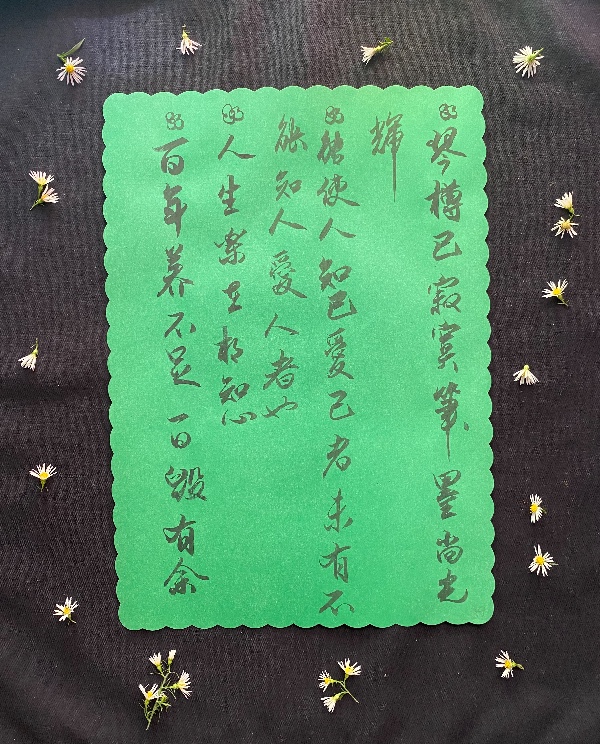 琴樽已寂寞筆墨尚光
輝
能使人知己愛己者未有不
能知人愛人者也
人生樂在相知心
百年养不足一日毁有余